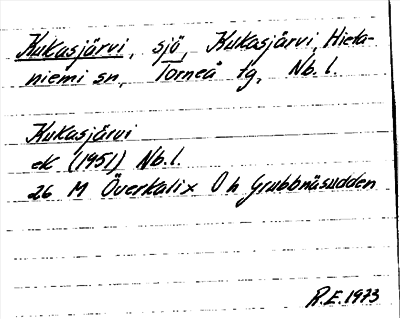 Kukasjärvi, sjö, Kukasjärvi, Hieta-
niemi sn, Torneå tg, Nb. l.
Kukasjärvi
ek (1951) Nb. l.
26 M Överkalix O h Grubbnäsudden
R.E. 1973